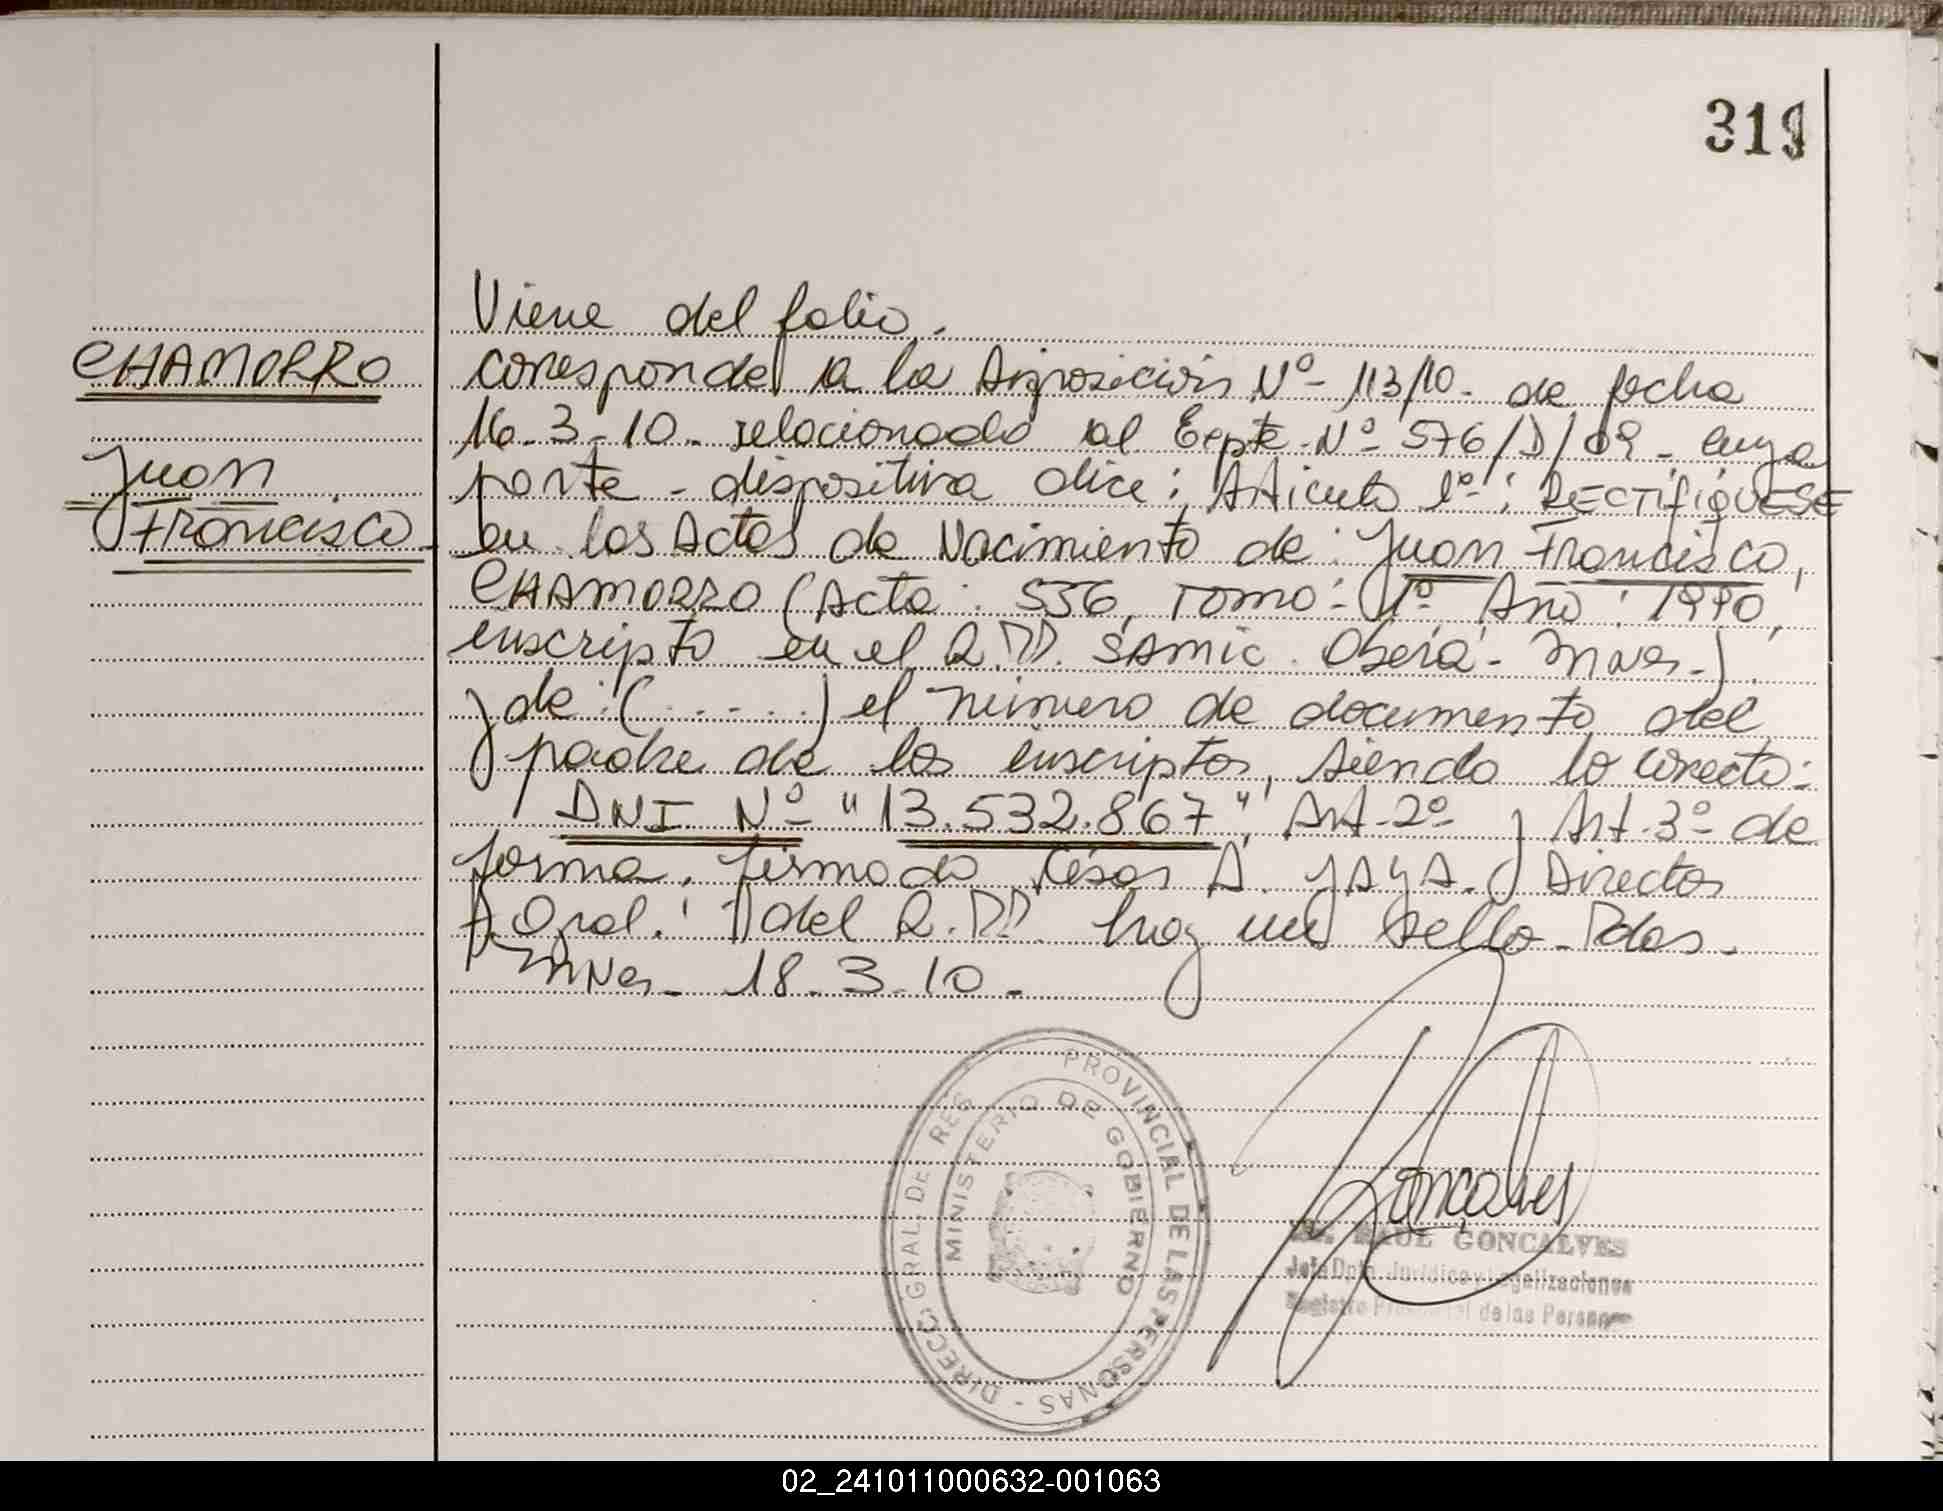 319
Viene del folio.
CHAMORRO
corresponde a la Disposición Nº- 113/10- de fecha
16-3-10- relacionado al Expte-Nº- 576/D/09- cuya
Juan
parte-dispositiva dice: Articulo 1º-: RECTIFIQUESE
Francisco-
en las Actas de Nacimiento de: Juan Francisco,
CHAMORRO (Acta: 556, Tomo: 1º, Año: 1990,
inscripto en el R.PP. SAMIC. Oberá- Mnes-)
y de: (.....) el número de documento del
padre de los inscriptos, siendo lo correcto:
DNI Nº- "13.532.867", Art-2º- y Art-3º- de
forma, firmado César A. YAYA. Director
Gral. del R.PP. hay un sello-Pdas-
Mnes- 18-3-10-
DIRECC. GRAL. DE REG PROVINCIAL DE LAS PERSONAS -
MINISTERIO DE GOBIERNO
Gonçalves
RAUL GONCALVES
Jefe Dpto. Jurídico y Legalizaciones
Registro Provincial de las Personas
02_241011000632-001063